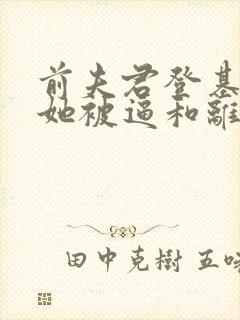 前夫君登基
她被逼和離
田中克樹 五